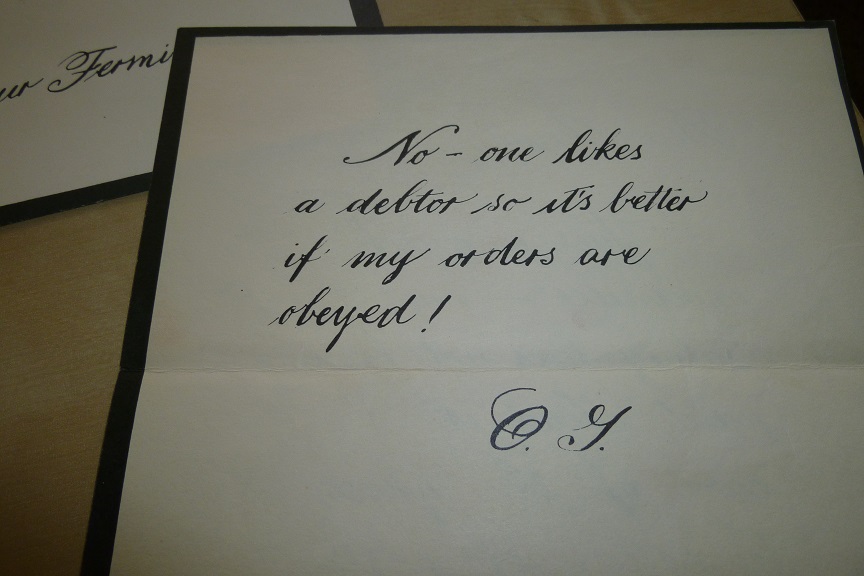 ur Fermi
No-one likes
a debtor so it's better
if my orders are
obeyed!
O. G.